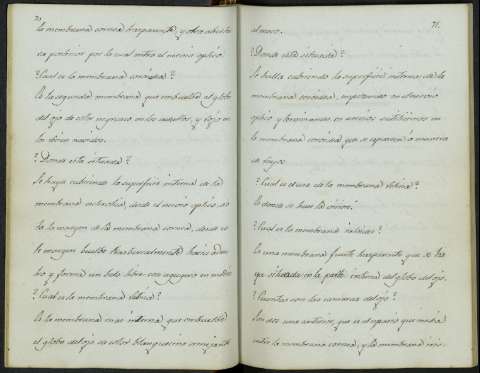 70
la membrana cornea trasparente, y otra abierta
da posterior por la cual entra el nervio optico.
? Cual es la membrana coroidea?
Es la segunda membrana que embuelbe el globo
del ojo de color negruzco en los adultos, y rojo en
los recien nacidos.
? Donde está situada?
Se haya cubriendo la superficie interna de la
membrana esclerotica, desde el nervio optico, as
ta la margen de la membrana cornea, desde cu
lo margen buelbe transversalmente hacia aden
tro y forma un belo libre con agugero en medio.
? Cual es la membrana retina?
Es la membrana mas interna, que embuelbe
el globo del ojo de color blanquecino semejante
71.
al moco.
? Donde está situada?
Se halla cubriendo la superficie interna de la
membrana coroidea, empezando en el nervio
optico y terminando en
la membrana coroidea que se
de
? Cual es el uso de la membrana retina?
Es donde se hace la vision.
? Cual es la membrana
Es una membrana trasparente que se ha
ya situada en la parte interna del globo del ojo.
? Cuantas son las camaras del ojo?
Son dos una anterior, que es el espacio que media
entre la membrana cornea, y la membrana iris.